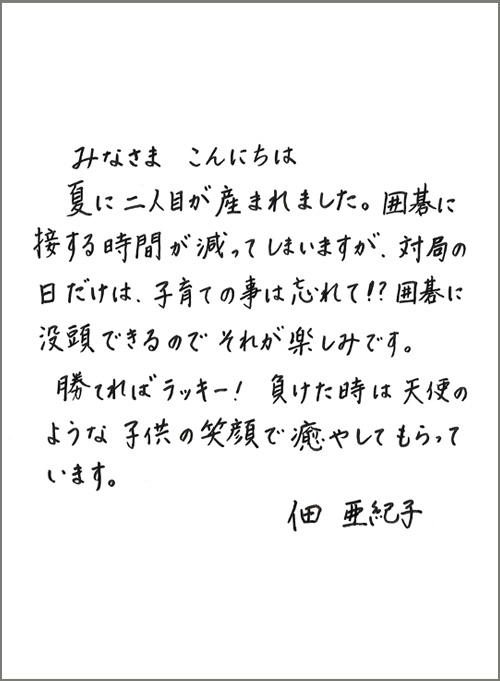 みなさま こんにちは
夏に二人目が産まれました。囲碁に
接する時間が減ってしまいますが、対局の
日だけは、子育ての事は忘れて!?囲碁に
没頭できるのでそれが楽しみです。
勝てればラッキー! 負けた時は天使の
ような子供の笑顔で癒やしてもらって
います。
佃 亜紀子